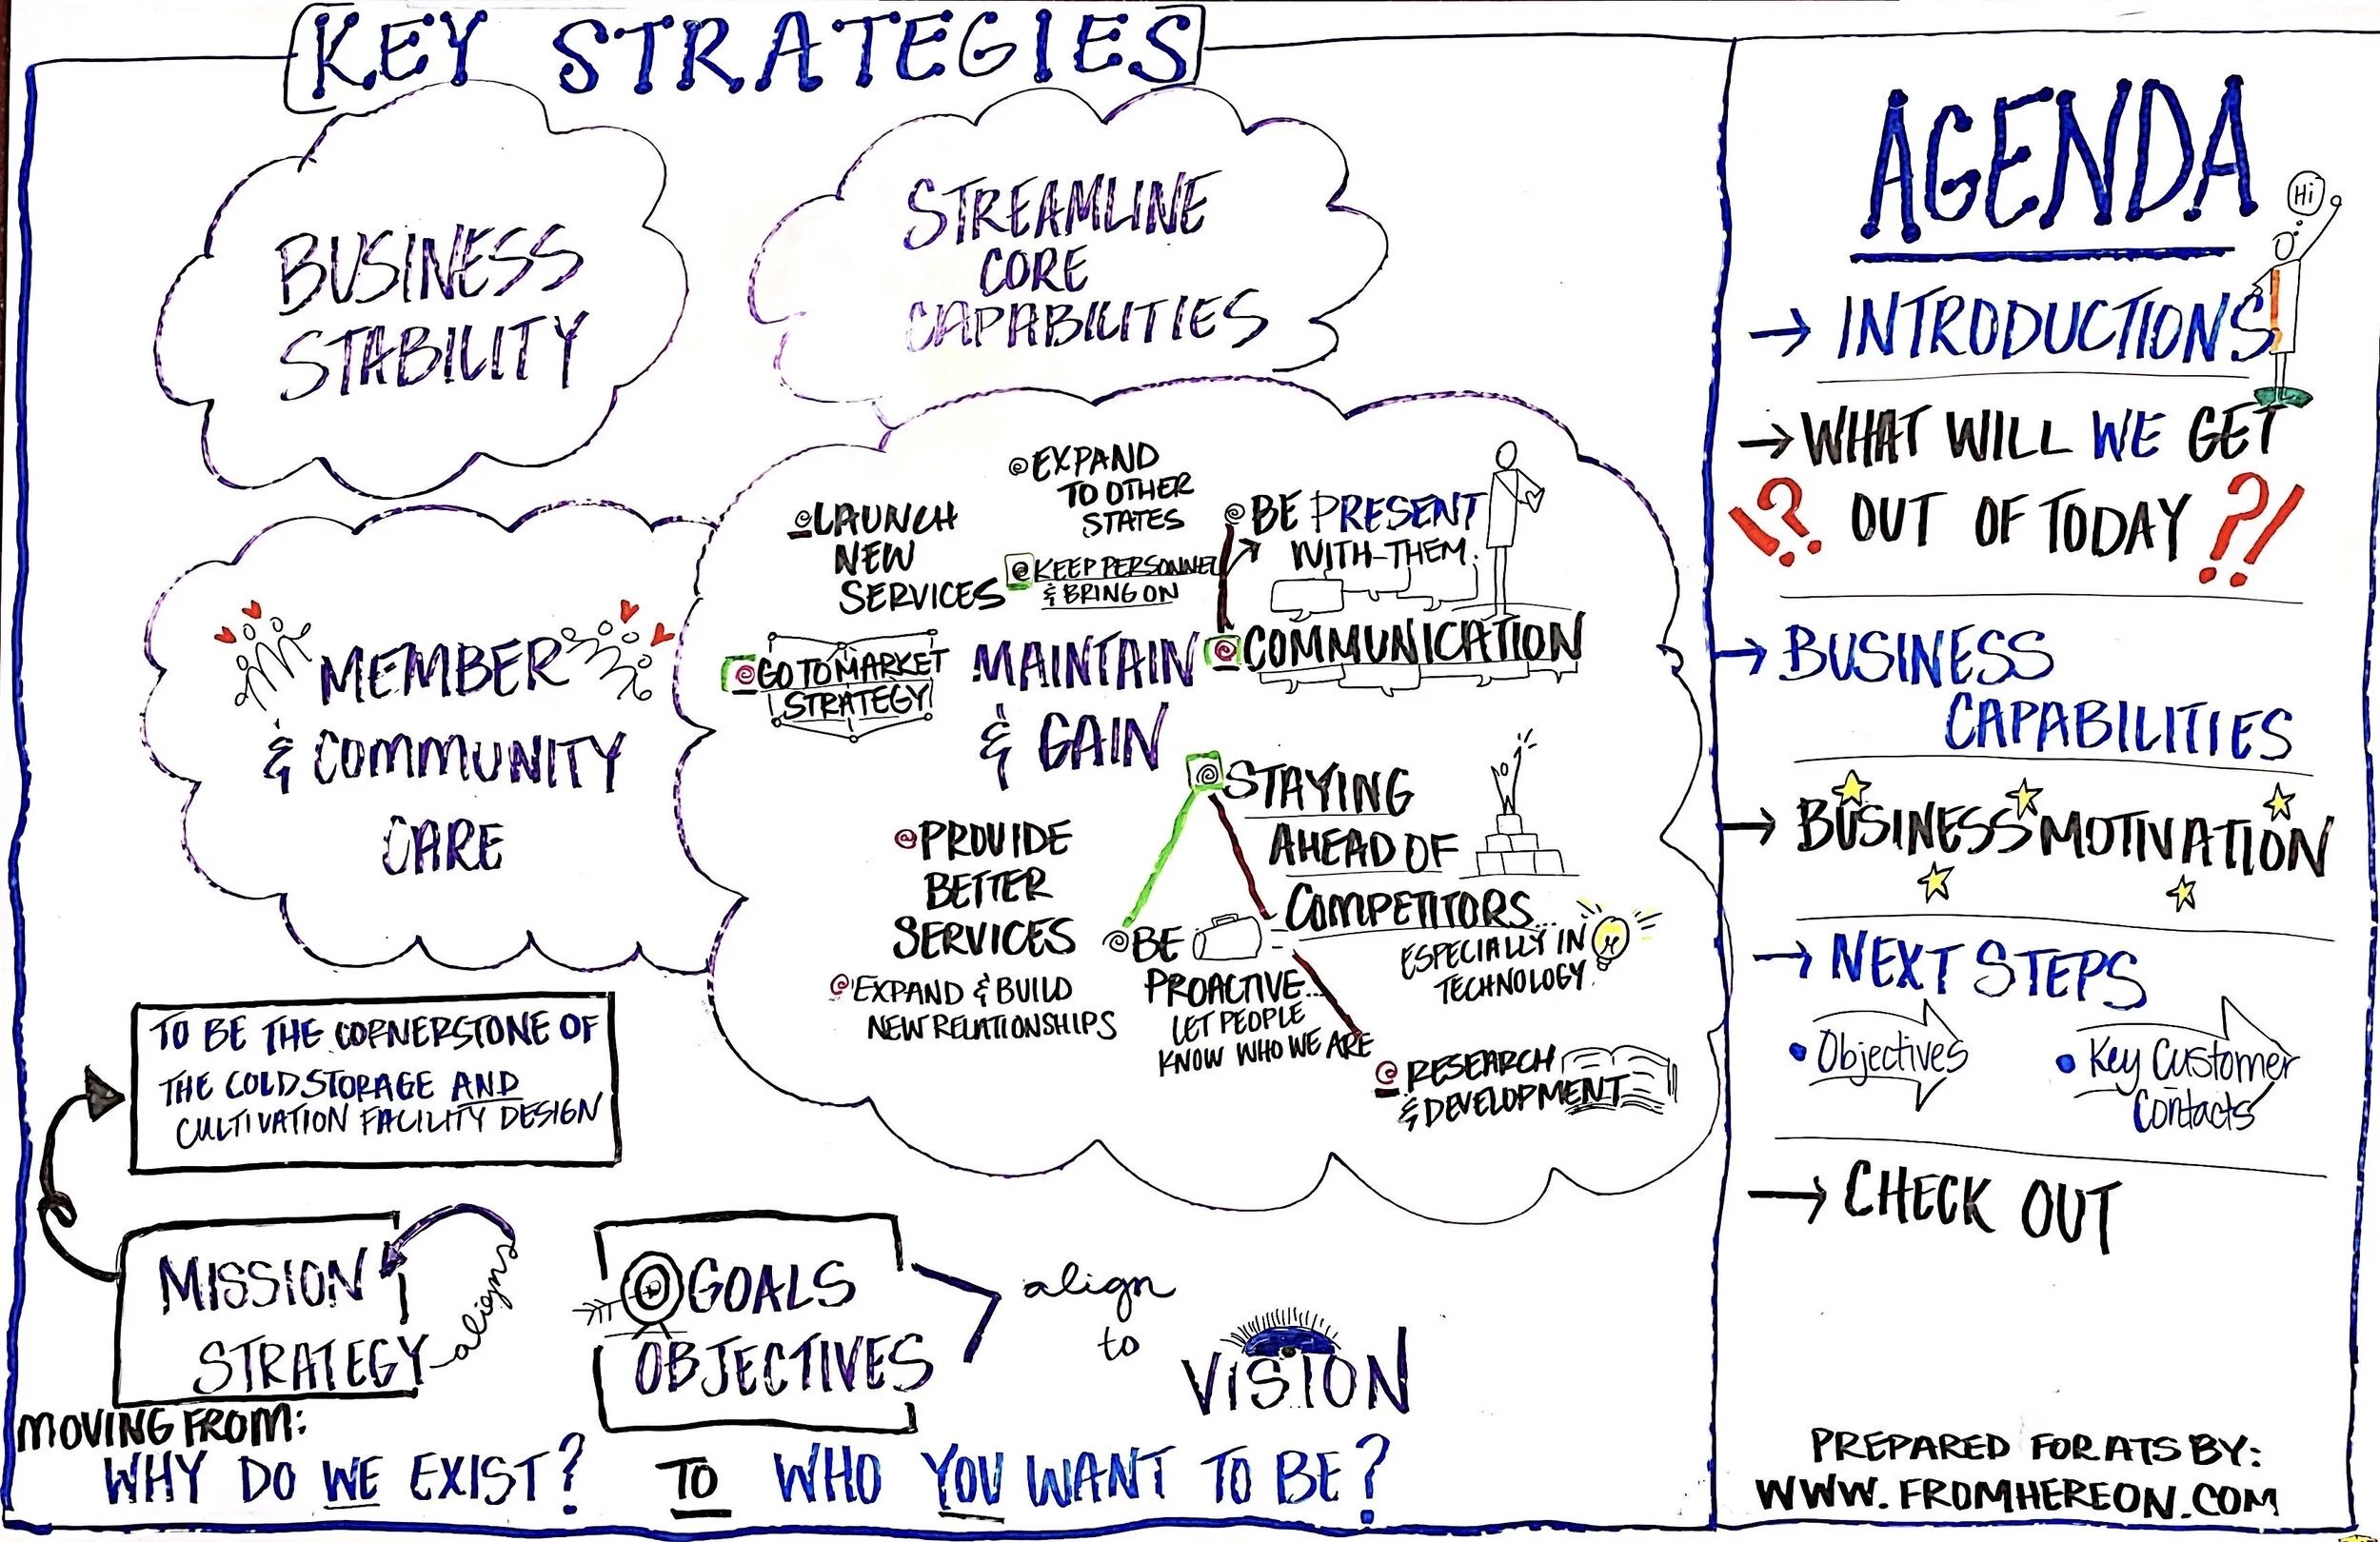 KEY STRATEGIES
BUSINESS
STABILITY
STREAMLINE
CORE
CAPABILITIES
MEMBER
& COMMUNITY
CARE
LAUNCH
NEW
SERVICES
EXPAND
TO OTHER
STATES
KEEP PERSONNEL
& BRING ON
BE PRESENT
WITH THEM.
GO TO MARKET
STRATEGY
MAINTAIN
& GAIN
COMMUNICATION
STAYING
AHEAD OF
COMPETITORS...
ESPECIALLY IN
TECHNOLOGY.
PROVIDE
BETTER
SERVICES
EXPAND & BUILD
NEW RELATIONSHIPS
BE
PROACTIVE...
LET PEOPLE
KNOW WHO WE ARE
RESEARCH
& DEVELOPMENT
TO BE THE CORNERSTONE OF
THE COLD STORAGE AND
CULTIVATION FACILITY DESIGN
MISSION
STRATEGY
aligns
GOALS
OBJECTIVES
align
to
VISION
MOVING FROM:
WHY DO WE EXIST? TO WHO YOU WANT TO BE?
AGENDA
Hi
→ INTRODUCTIONS
→ WHAT WILL WE GET
!? OUT OF TODAY ?!
→ BUSINESS
CAPABILITIES
→ BUSINESS MOTIVATION
→ NEXT STEPS
• Objectives
• Key Customer
Contacts
→ CHECK OUT
PREPARED FOR ATS BY:
WWW.FROMHEREON.COM